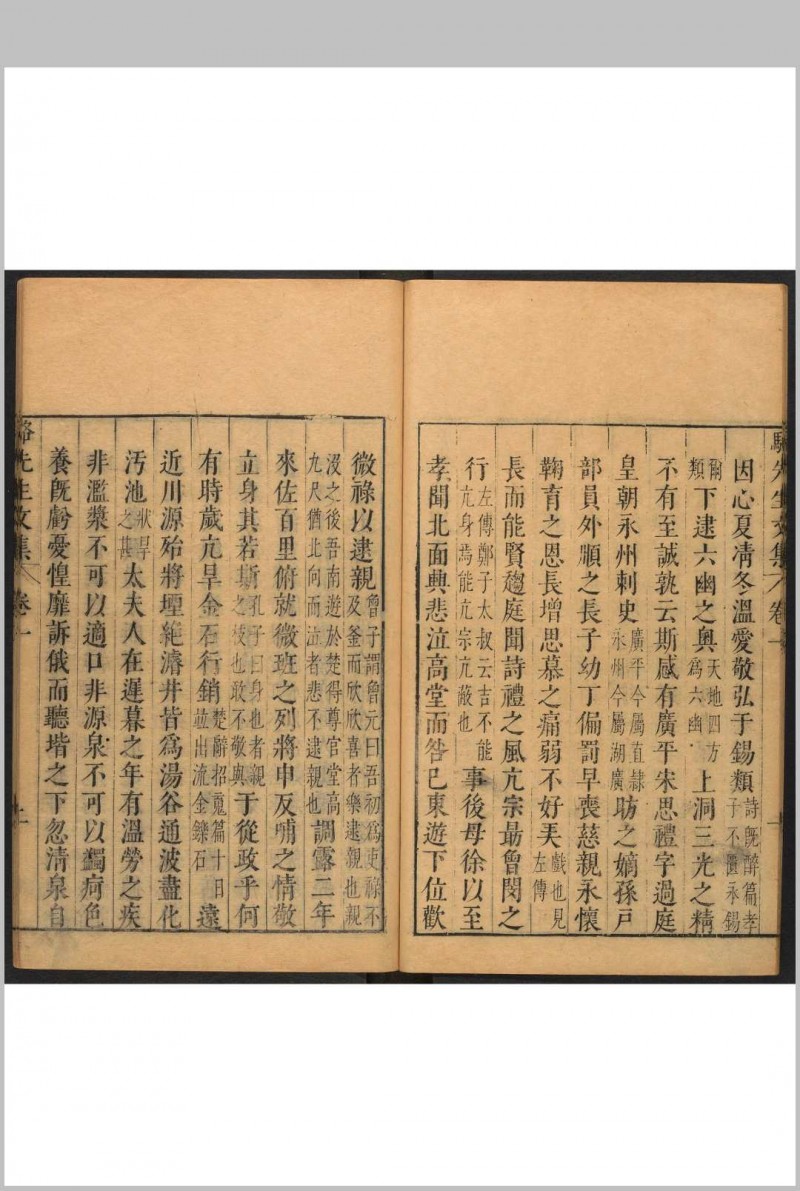 駱先生文集　卷一
因心夏凊冬溫愛敬弘于錫類詩既醉篇孝子不匱永錫
爾類下逮六幽之奧天地四方為六幽上洞三光之精
不有至誠孰云斯感有廣平宋思禮字過庭
皇朝永州刺史廣平今屬直隸永州今屬湖廣昉之嫡孫戸
部員外順之長子幼丁偏罰早喪慈親永懷
鞠育之恩長增思慕之痛弱不好弄戲也見左傳
長而能賢趨庭聞詩禮之風亢宗最曾閔之
行左傳鄭子太叔云吉不能亢身焉能亢宗亢蔽也事後母徐以至
孝聞北面興悲泣高堂而咎已東遊下位歡
微祿以逮親曾子謂曾元曰吾初為吏祿不及釜而欣欣喜者樂逮親也親
沒之後吾南遊於楚得尊官堂高九尺猶北向而泣者悲不逮親也調露二年
來佐百里俯就微班之列將申反哺之情敬
立身其若斯孔子曰身也者親之枝也敢不敬與于從政乎何
有時歲亢旱金石行銷楚辭招䰟篇十日並出流金鑠石遠
近川源殆將堙絕濬井皆為湯谷通波盡化
汚池狀旱之甚太夫人在遲暮之年有溫勞之疾
非濫漿不可以適口非源泉不可以蠲痾色
養既虧憂惶靡訴俄而聽堦之下忽清泉自
駱先生文集　卷一　十一